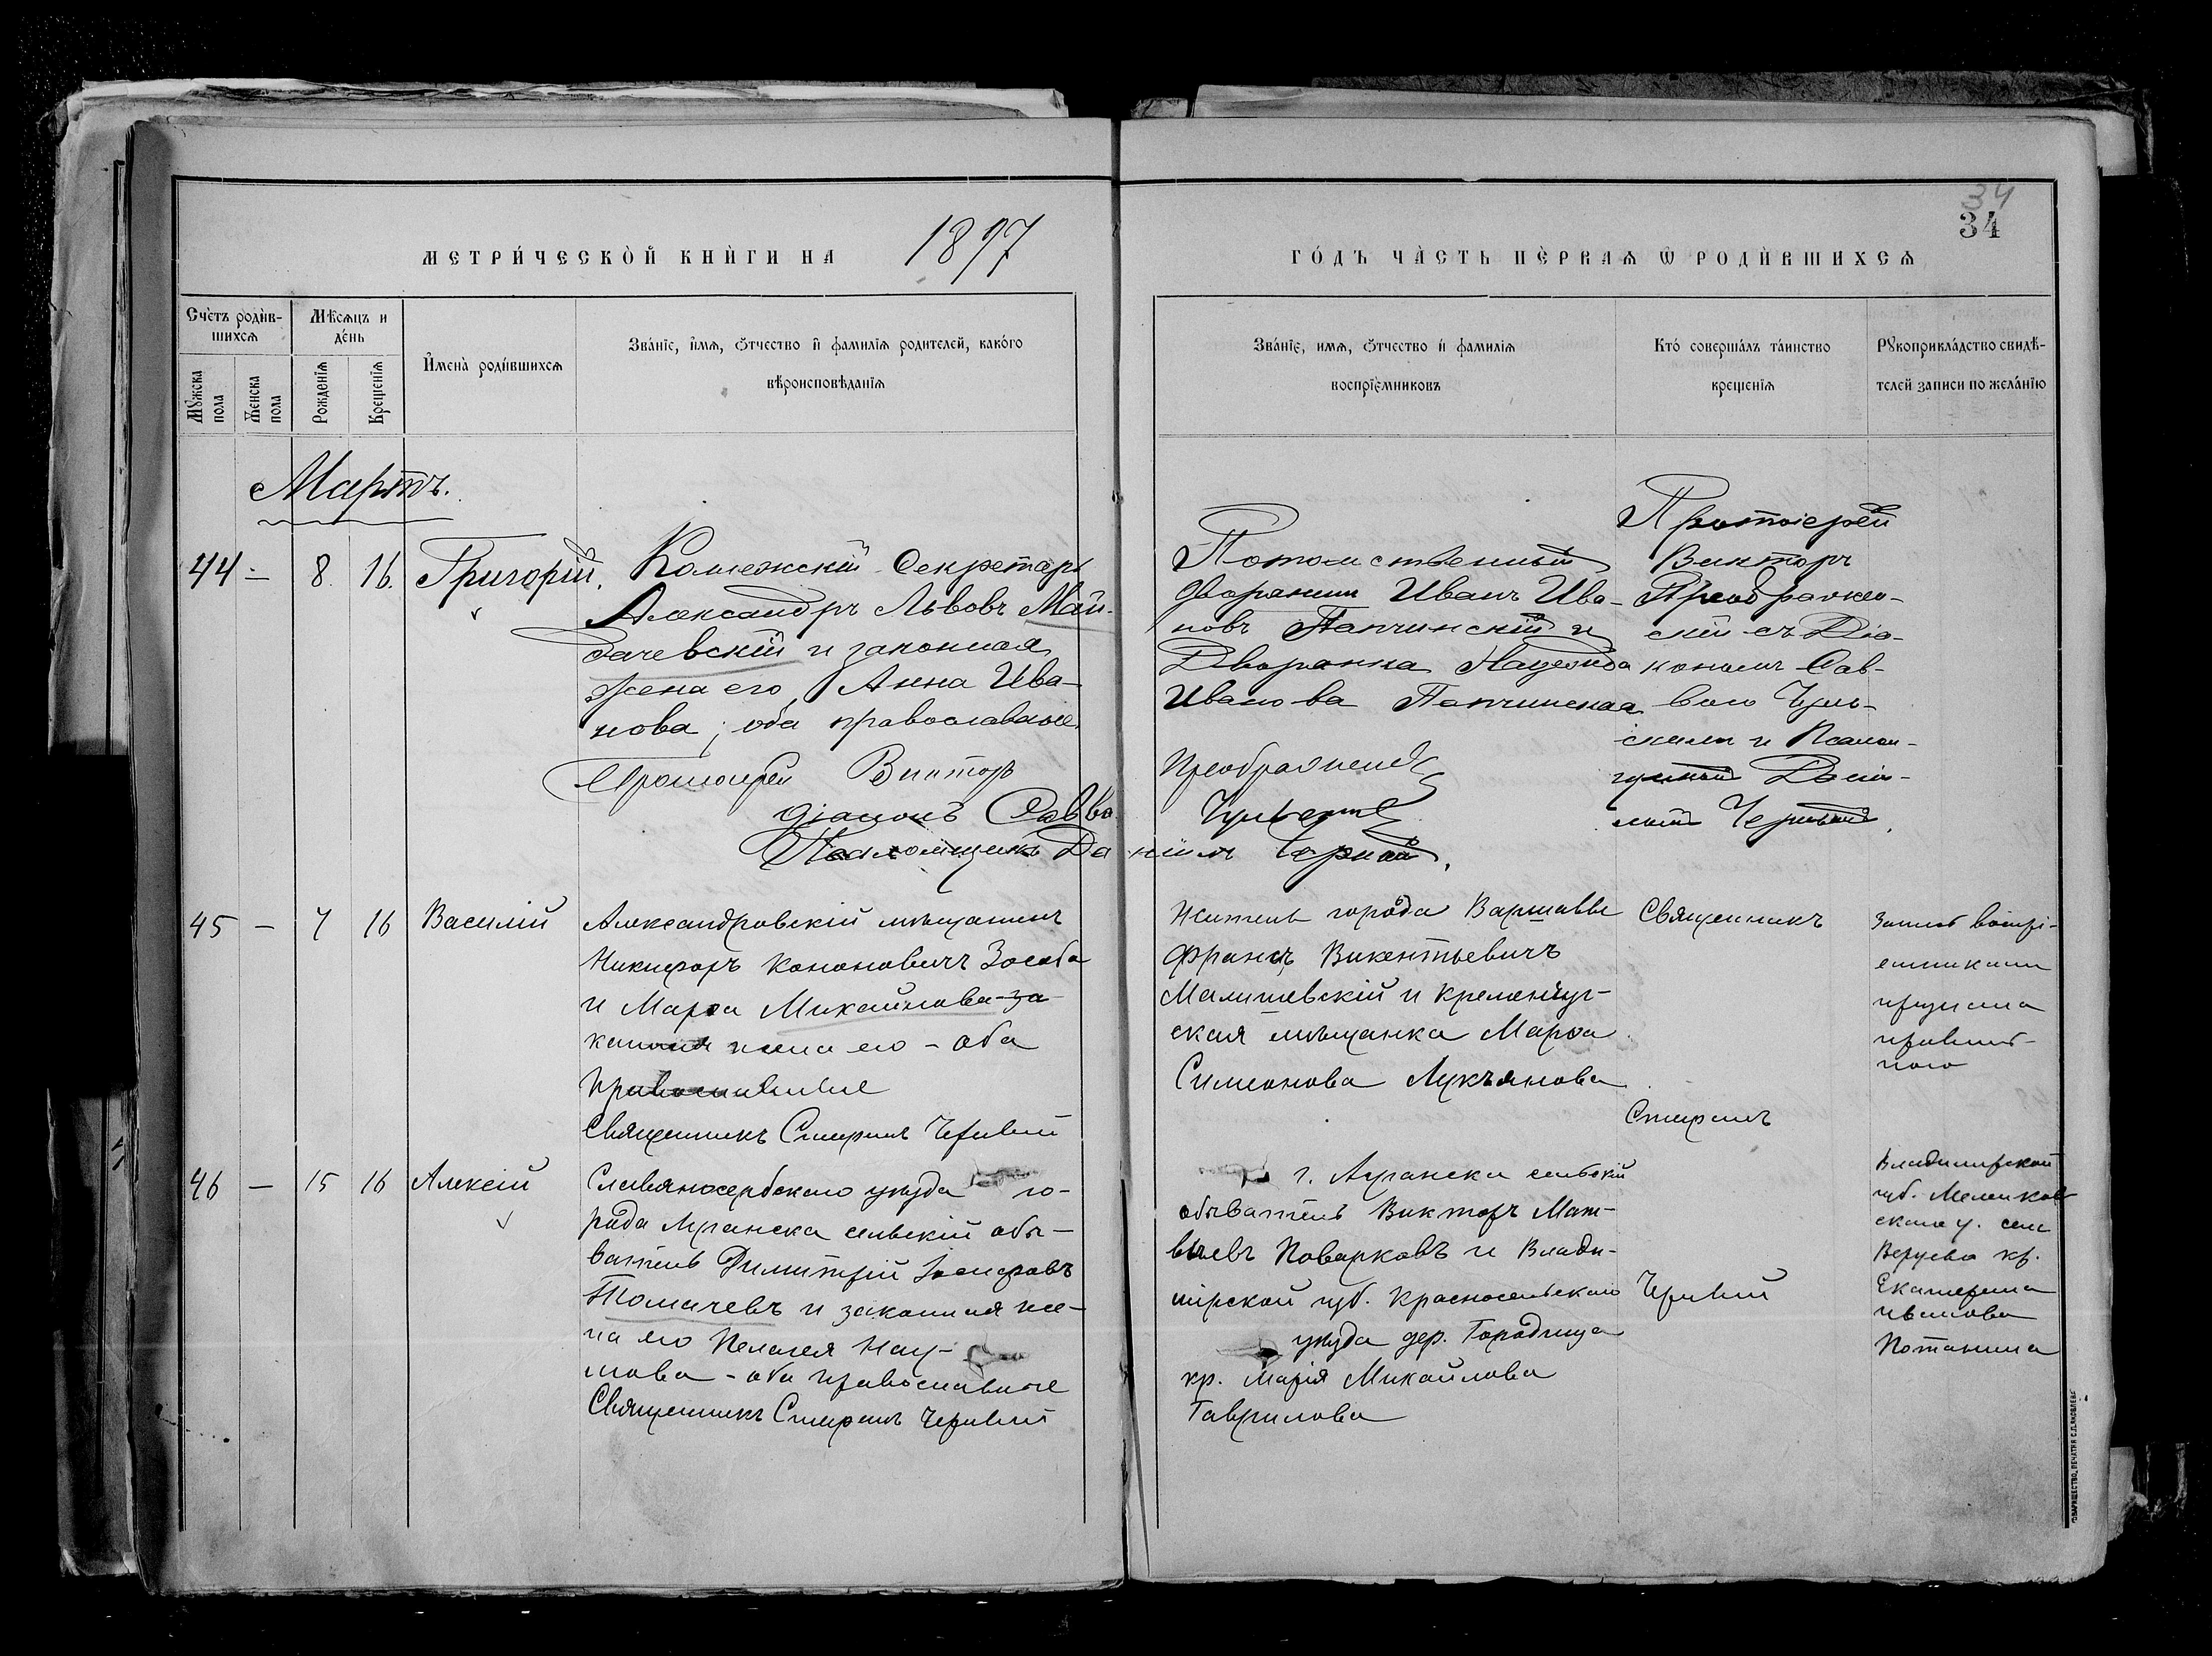 34
34
МЕТРИ́ЧЕСКОЙ КНИ́ГИ НА 1897
ГО́ДЪ ЧА́СТЬ ПЕ́РВАѦ Ѿ РОДИ́ВШИХСѦ
Сче́тъ роди́в-
шихсѧ
Мѣ́сѧцъ и
де́нь
Мꙋ́жска
пола
Же́нска
пола
Рожде́нїѧ
Креще́нїѧ
И́мена̀ роди́вшихсѧ
Зва́нїе, и́мѧ, ѻ҆́тчество и҆ фами́лїѧ роди́телей, како́го
вѣ́роисповѣ́данїѧ
Зва́нїе, и́мѧ, ѻ҆́тчество и҆ фами́лїѧ
воспрїе́мниковъ
Кто́ соверша́лъ та́инство
креще́нїѧ
Рꙋкоприкла́дство свидѣ́-
телей записи по жела́нїю
Мартъ.
44 – 8. 16. Григорій.
Коллежскій Секретарь
Александръ Львовъ Май-
дачевскій и законная
жена его, Анна Ива-
нова; оба православные.
Протоіерей Викторъ
Діаконъ Савва
Псаломщикъ Да
Потомственный
дворянинъ Иванъ Ива-
новъ Папчинскій и
Дворянка Надежда
Иванова Папчинская
Преображенскій
ніилъ Черный.
Протоіерей
Викторъ
Преображен-
скій съ Діа-
кономъ Сав-
вою
и Псалом-
щикомъ Дані-
иломъ Чернымъ.
45 – 7 16 Василій
Александровскій мѣщанинъ
Никифоръ Кононовичъ Зособа
и Марѳа Михайлова за-
конная жена его – оба
православные
Священникъ Спиридонъ
Житель города Варшавы
Францъ Викентьевичъ
Малишевскій и Кременчуг-
ская мѣщанка Марѳа
Симеонова Лукъянова
Священникъ
Запись воспрі-
емниками
46 – 15 16 Алексій
Славяносербскаго уѣзда го-
рода Луганска сельскій обы-
ватель Димитрій Іосифовъ
Толмачевъ и законная же-
на его Пелагея Нау-
мова – оба православные
Священникъ Спиридонъ
г. Луганска сельскій
обыватель Викторъ Мат-
вѣевъ Поварковъ и Влади-
мірской губ. Красносельскаго
уѣзда дер. Городища
кр. Марія Михайлова
Гаврилова
Владимірской
губ. Меленков-
скаго у. села
кр.
Екатерина
Иванова
Потанина